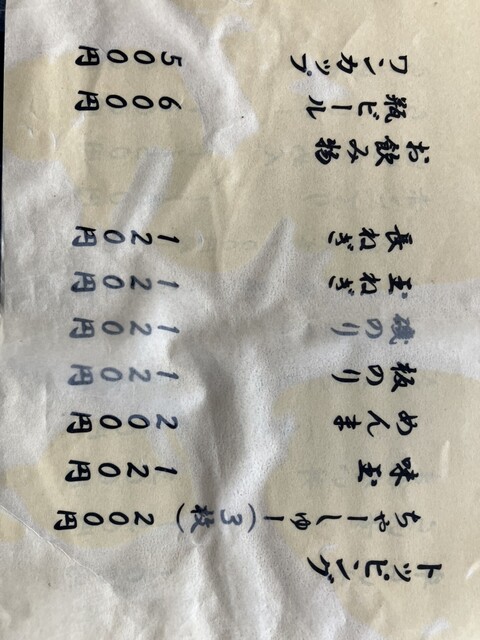 トッピング
ちゃーしゅー(3枚) 200円
味玉 120円
めんま 200円
板のり 120円
磯のり 120円
玉ねぎ 120円
長ねぎ 120円
お飲み物
瓶ビール 600円
ワンカップ 500円